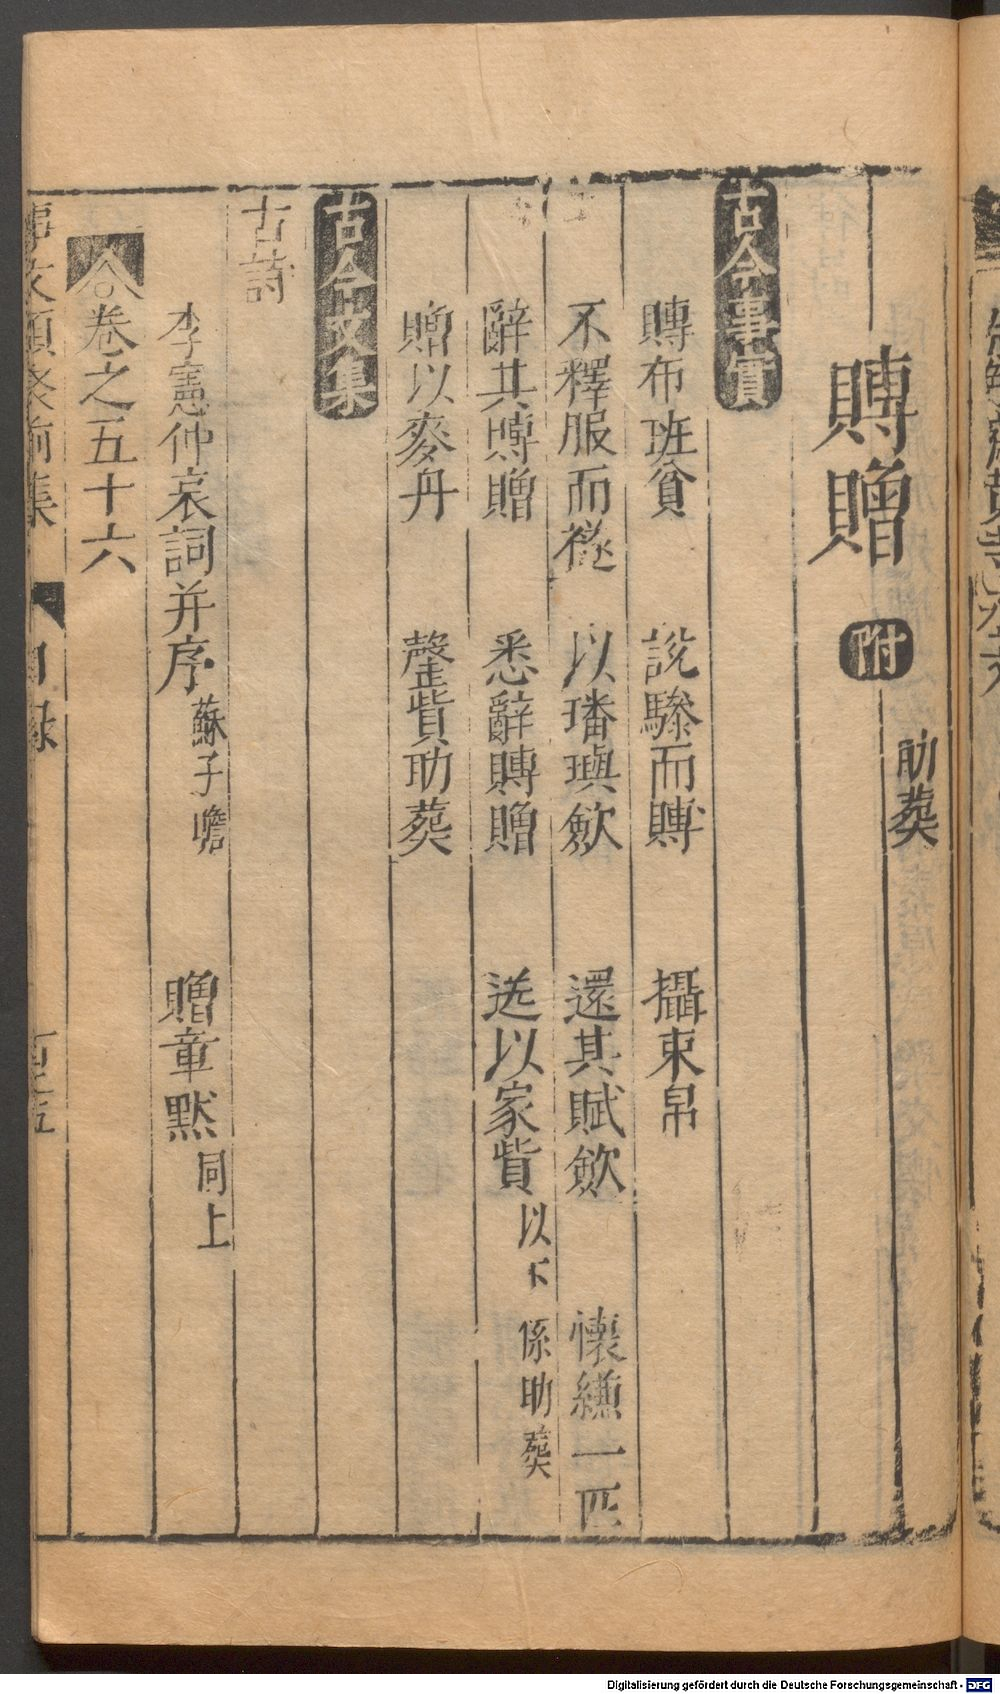 賻贈 附 助葬
古今事實
賻布班貧 說驂而賻 攝束帛
不釋服而襚 以璠璵斂 還其賦斂 懷縑一匹
辭其賻贈 悉辭賻贈 送以家貲 以下係助葬
贈以麥舟 罄貲助葬
古今文集
古詩
李憲仲哀詞并序 蘇子瞻 贈章默 同上
卷之五十六
事文類聚前集 目錄
Digitalisierung gefördert durch die Deutsche Forschungsgemeinschaft - DFG